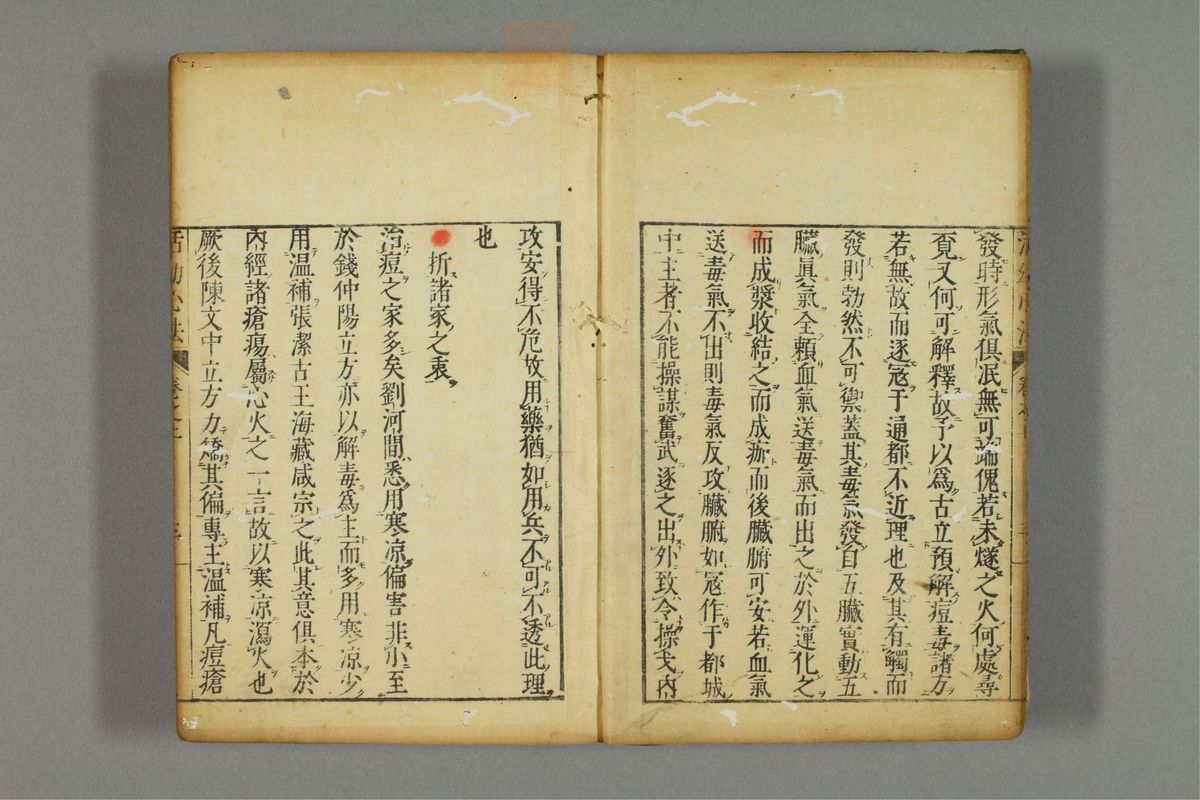 發時形氣俱泯無可端倪若未燧之火何處尋
覔又何可解釋故予以爲古立預解痘毒諸方
若無故而逐冦于通都不近理也及其有觸而
發則勃然不可禦蓋其毒氣發自五臟實動五
臟眞氣全賴血氣送毒氣而出之於外運化之
而成漿收結之而成痂而後臟腑可安若血氣
送毒氣不出則毒氣反攻臟腑如冦作于都城
中主者不能操謀奮武逐之出外致令操戈内
攻安得不危故用藥猶如用兵不可不透此理
也
折諸家之衷
治痘之家多矣劉河間悉用寒凉偏害非小至
於錢仲陽立方亦以解毒爲主而多用寒凉少
用溫補張潔古王海藏咸宗之此其意俱本於
内經諸瘡瘍屬心火之一言故以寒凉瀉火也
厥後陳文中立方力矯其偏專主溫補凡痘瘡
活幼心法 卷之二